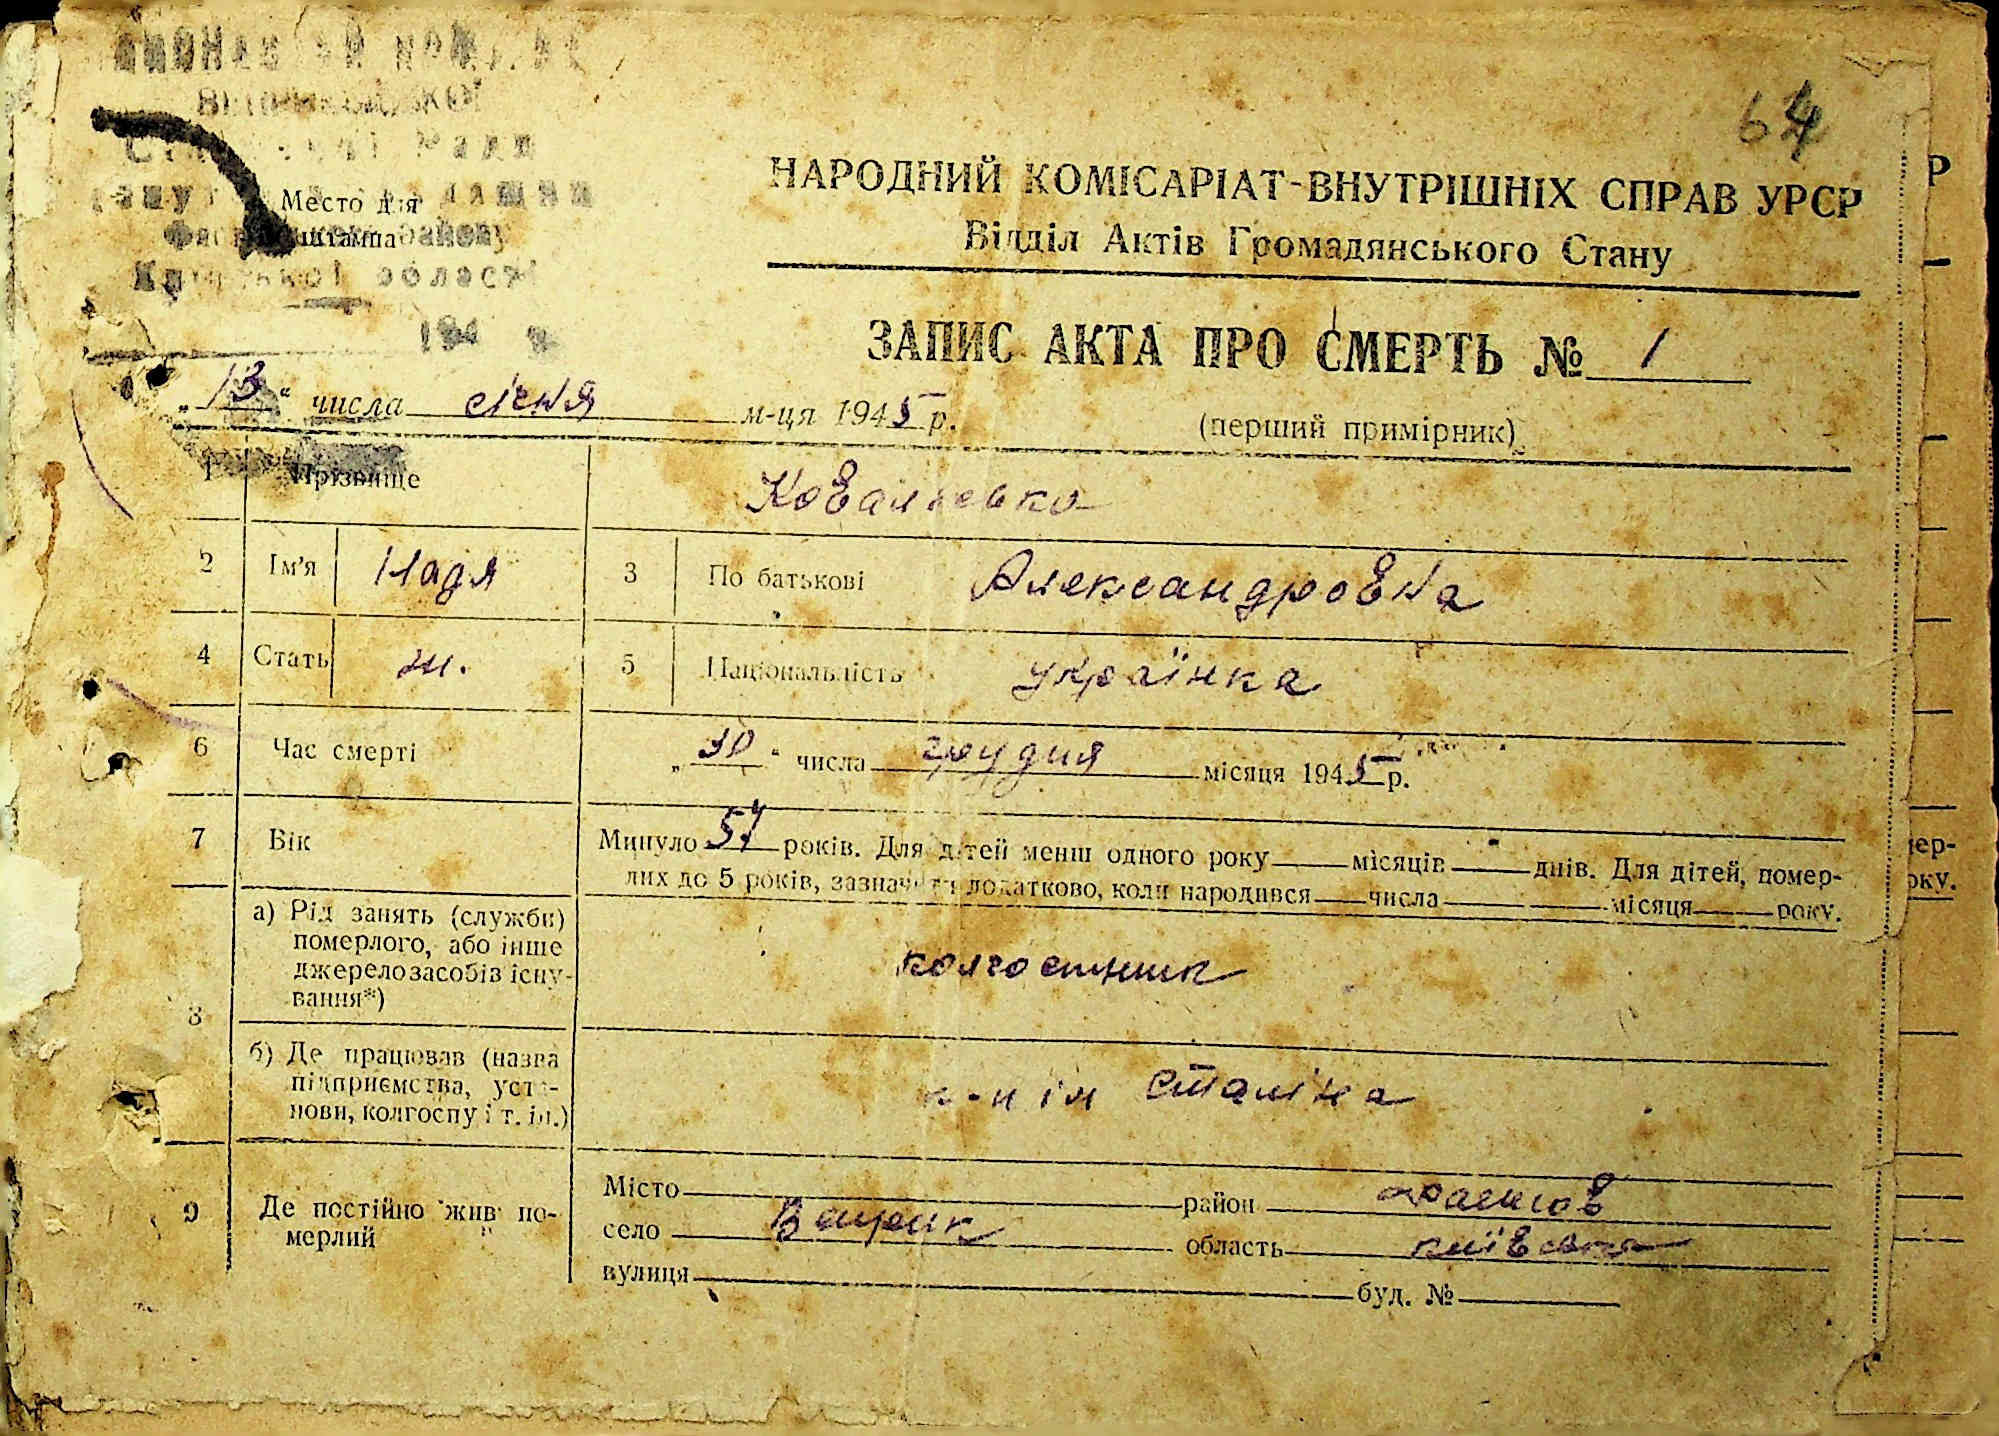 64
Место для
штампа
області
194 р.
НАРОДНИЙ КОМІСАРІАТ-ВНУТРІШНІХ СПРАВ УРСР
Відділ Актів Громадянського Стану
ЗАПИС АКТА ПРО СМЕРТЬ № 1
„13“ числа січня м-ця 1945 р.
(перший примірник)
1 Прізвище Коваленко
2 Ім'я Надя 3 По батькові Александровна
4 Стать ж. 5 Національність українка
6 Час смерті „30“ числа грудня місяця 1945 р.
7 Вік Минуло 57 років. Для дітей менш одного року місяців днів. Для дітей, помер-
лих до 5 років, зазначити додатково, коли народився числа місяця року.
8 а) Рід занять (служби)
померлого, або інше
джерело засобів існу-
вання*) колгоспник
б) Де працював (назва
підприємства, уста-
нови, колгоспу і т. ін.) к-п ім Сталіна
9 Де постійно жив по-
мерлий
Місто район Фастов
село область київська
вулиця буд. №